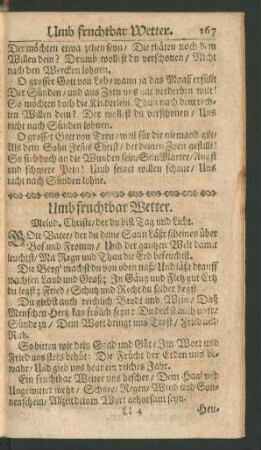 Umb fruchtbar Wetter. 167
Der möchten etwa zehen seyn / Die thäten noch dem
Willen dein? Drumb wollst dn verschonen / Nicht
nach den Wercken lohnen.
O grosser Gott von Lob / wann ja das Maaß erfüllt
Der Sünden / und aus Zorn uns gar verderben wolt /
So möchten doch die Kinderlein Thun nach dem rech-
ten Willen dein? Der wollest du verschonen / Uns
nicht nach Sünden lohnen.
O grosser Gott von Treu / weil für dir niemand gilt /
Als dein Sohn JEsus Christ / der deinen Zorn gestillt /
So sieh doch an die Wunden sein / Sein Marter / Angst
und schwere Pein / Umb seinet willen schone / Uns
nicht nach Sünden lohne.
Umb fruchtbar Wetter.
Melod. Christe / der du bist Tag und Licht.
GOtt Vater / der du deine Sonn Läßt scheinen über
Böß und Fromm / Und der gantzen Welt damit
leuchtst / Mit Regn und Thau die Erd befeuchtst.
Die Berg machst du von oben naß / Und läßt drauff
wachsen Laub und Graß; In Gäng und Fletz gut Ertz
du legst / Fried / Schutz und Recht du selber hegst.
Du giebst auch reichlich Brodt und Wein / Daß
Menschen Hertz kan frölich seyn: Du deckst auch unsre
Sünde zu / Dein Wort bringt uns Trost / Fried und
Ruh.
So bitten wir dein Gnad und Güt / Im Wort und
Fried uns stets behüt: Die Frücht der Erden uns be-
wahr / Und gieb uns heur ein reiches Jahr.
Ein fruchtbar Wetter uns bescher / Dem Hagl und
Ungewitter wehr / Schnee / Regen / Wind und Son-
nenschein / Allzeit deinem Wort gehorsam seyn.
Ll 4 Heu-